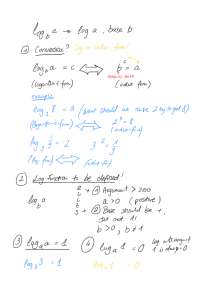 log_b a → log a, base b
① Conversion? log ⇔ index form
log_b a = c ⇔ b^c = a
(logarithm form) (index form)
example
log_2 8 = 3 (what should we raise 2 by to get 8)
(logarithm form) ⇔ 2^3 = 8
(index form)
log_3 9 = 2 3^2 = 9
(log form) ⇔ (index form)
② Log function to be defined!
log_b a
① Argument > zero
a > 0 (positive)
② Base should be +,
but not 1!
b > 0, b ≠ 1
③ log_a a = 1 ④ log_a 1 = 0 log with argument
1 is always 0
log_3 3 = 1 = 0